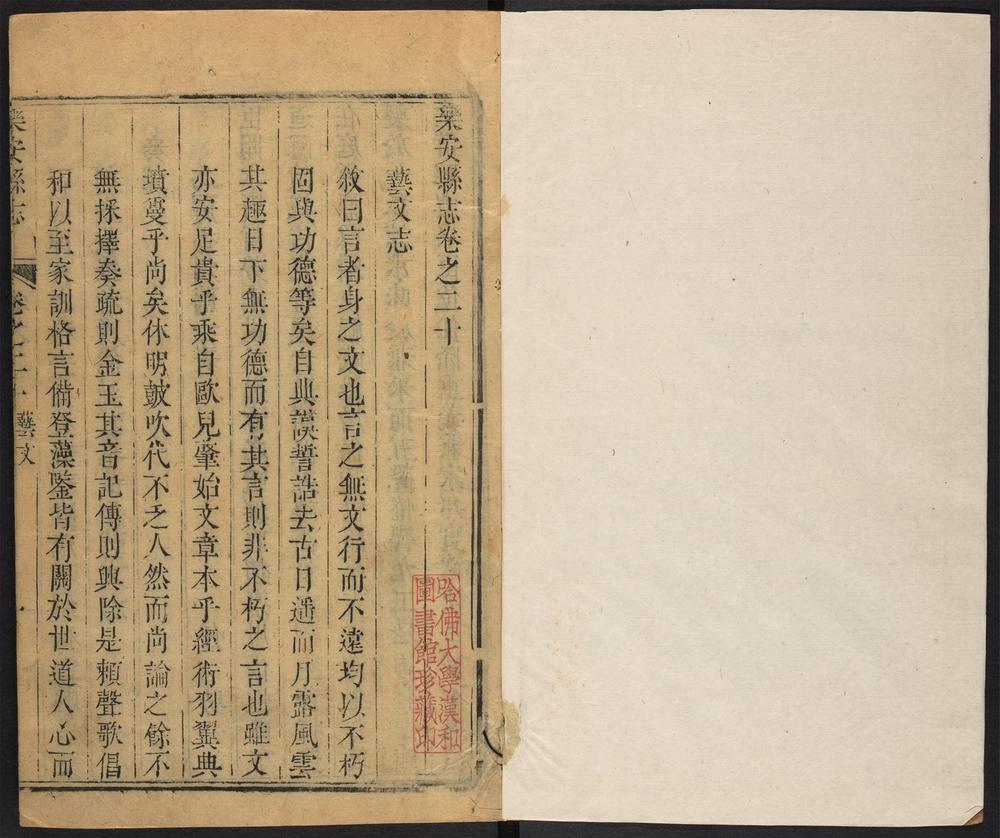 樂安縣志卷之二十
藝文志
敘曰言者身之文也言之無文行而不遠均以不朽
固與功德等矣自典謨誓誥去古日遥而月露風雲
其趣日下無功德而有其言則非不朽之言也雖文
亦安足貴乎乘自歐兒肇始文章本乎經術羽翼典
墳蔓乎尚矣休明皷吹代不乏人然而尚論之餘不
無採擇奏疏則金玉其音記傳則興除是賴聲歌倡
和以至家訓格言備登藻鑒皆有關於世道人心而
樂安縣志 卷之二十 藝文 一
哈佛大學漢和
圖書館珍藏印